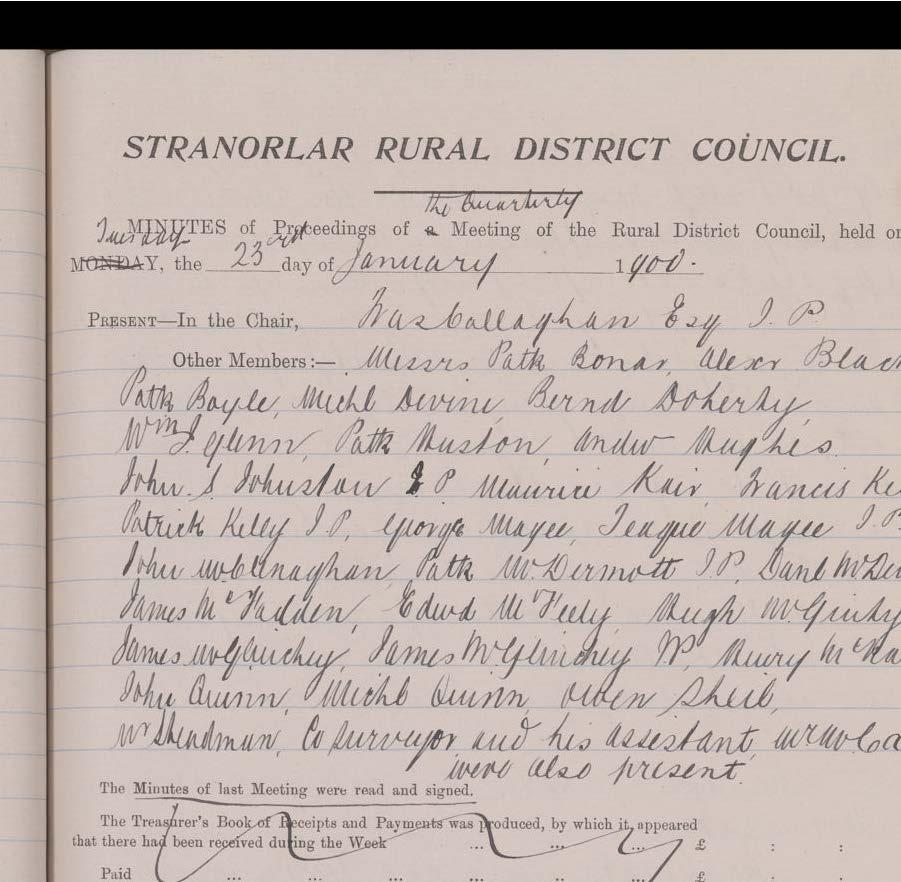 STRANORLAR RURAL DISTRICT COUNCIL.
the Quarterly
MINUTES of Proceedings of a Meeting of the Rural District Council, held on
Tuesday
MONDAY, the 23rd day of January 1900.
PRESENT—In the Chair, Callaghan Esq J. P.
Other Members:— Messrs Patk Bonar, Alexr Black
Patk Boyle, Michl Devine, Bernd Doherty
Wm J. Glenn, Patk Huston, Andw Hughes.
John. S Johnston J P Maurice Kair, Francis Ke
Patrick Kelly J P, George Magee, Teague Magee J.P.
John McClenaghan, Patk McDermott J.P, Danl McDe
James McFadden, Edwd McFeely Hugh McGinty
James McGlinchey, James McGlinchey Henry McKa
John Quinn, Michl Quinn, Owen Sheil,
Mr Steadman, Co Surveyor and his assistant, Mr McCa
were also present.
The Minutes of last Meeting were read and signed.
The Treasurer's Book of Receipts and Payments was produced, by which it appeared
that there had been received during the Week ... ... ... £ : :
Paid ... ... ... ... ... ... £ : :